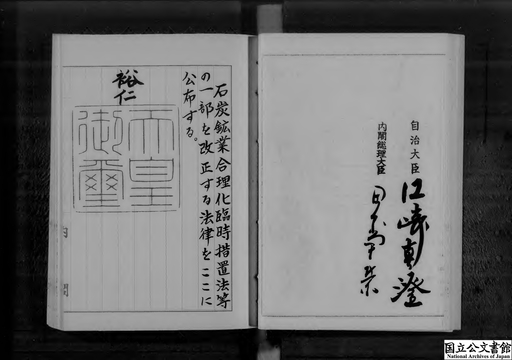 自治大臣 江崎真澄
内閣総理大臣 田中角榮
石炭鉱業合理化臨時措置法等
の一部を改正する法律をここに
公布する。
裕仁
天皇
御璽
国立公文書館
National Archives of Japan